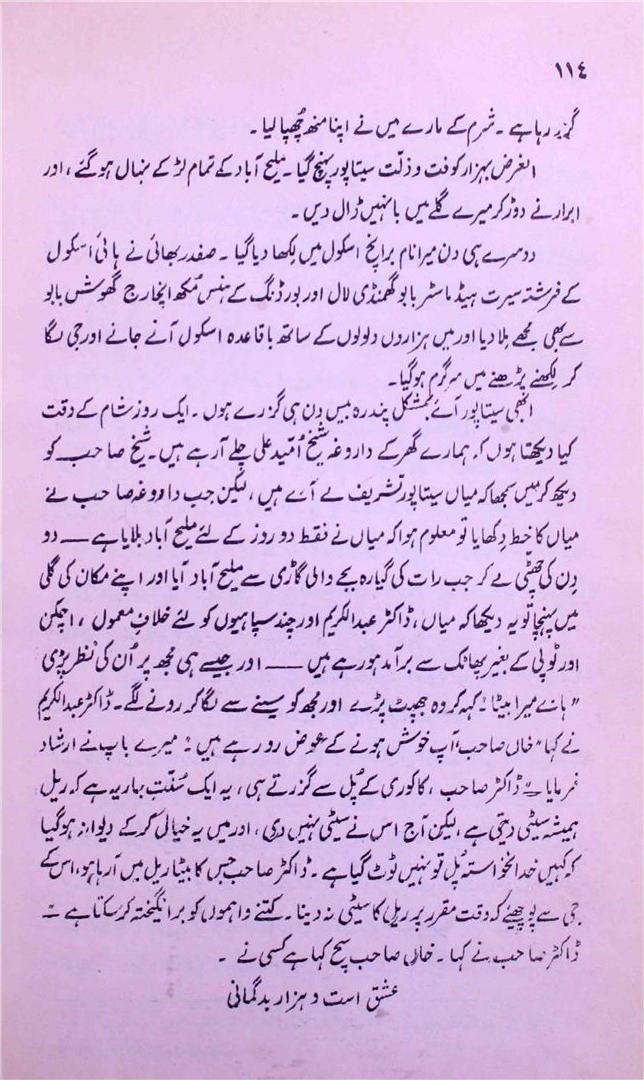 ۱۱٤
گزر رہا ہے ۔ شرم کے مارے میں نے اپنا منھ چھپا لیا ۔
الغرض بہزار کوفت و ذلّت سیتا پور پہنچ گیا ۔ ملیح آباد کے تمام لڑکے نہال ہو گئے ، اور
ابرار نے دوڑ کر میرے گلے میں بانہیں ڈال دیں ۔
دوسرے ہی دن میرا نام برانچ اسکول میں لکھا دیا گیا ۔ صفدر بھائی نے ہائی اسکول
کے فرشتہ سیرت ہیڈ ماسٹر بابو گھمنڈی لال اور بورڈنگ کے ہنس مُکھ انچارج گھوشں بابو
سے بھی مجھے ملا دیا اور میں ہزاروں ولولوں کے ساتھ باقاعدہ اسکول آنے جانے اور جی لگا
کر لکھنے پڑھنے میں سرگرم ہو گیا۔
ابھی سیتا پور آئے بمشکل پندرہ بیس دن ہی گزرے ہوں ۔ ایک روز شام کے وقت
کیا دیکھتا ہوں کہ ہمارے گھر کے داروغہ شیخ اُمّید علی چلے آرہے ہیں۔ شیخ صاحب کو
دیکھ کر میں سمجھا کہ میاں سیتا پور تشریف لے آئے ہیں ، لیکن جب داروغہ صاحب نے
میاں کا خط دکھایا تو معلوم ہوا کہ میاں نے فقط دو روز کے لئے ملیح آباد بلایا ہے ــــ دو
دن کی چھٹی لے کر جب رات کی گیارہ بجے والی گاڑی سے ملیح آباد آیا اور اپنے مکان کی گلی
میں پہنچا تو یہ دیکھا کہ میاں ، ڈاکٹر عبدالکریم اور چند سپاہیوں کو لئے خلافِ معمول ، اچکن
اور ٹوپی کے بغیر پھاٹک سے برآمد ہو رہے ہیں ــــ اور جیسے ہی مجھ پر اُن کی نظر پڑی
"ہائے میرا بیٹا" کہہ کر وہ جھپٹ پڑے اور مجھ کو سینے سے لگا کر رونے لگے۔ ڈاکٹر عبدالکریم
نے کہا "خاں صاحب، آپ خوش ہونے کے عوض رو رہے ہیں"۔ میرے باپ نے ارشاد
فرمایا "ڈاکٹر صاحب ، کاکوری کے پُل سے گزرتے ہی ، یہ ایک سُنّتِ جاریہ ہے کہ ریل
ہمیشہ سیٹی دیتی ہے ، لیکن آج اس نے سیٹی نہیں دی ، اور میں یہ خیال کر کے دیوانہ ہو گیا
کہ کہیں خدانخواستہ پُل تو نہیں ٹوٹ گیا ہے ۔ ڈاکٹر صاحب جس کا بیٹا ریل میں آرہا ہو، اس کے
جی سے پوچھیئے کہ وقت مقرر پر ریل کا سیٹی نہ دینا ۔ کتنے واہموں کو برانگیختہ کر سکتا ہے "
ڈاکٹر صاحب نے کہا ۔ خاں صاحب سچ کہا ہے کسی نے ۔
عشق است و ہزار بدگمانی